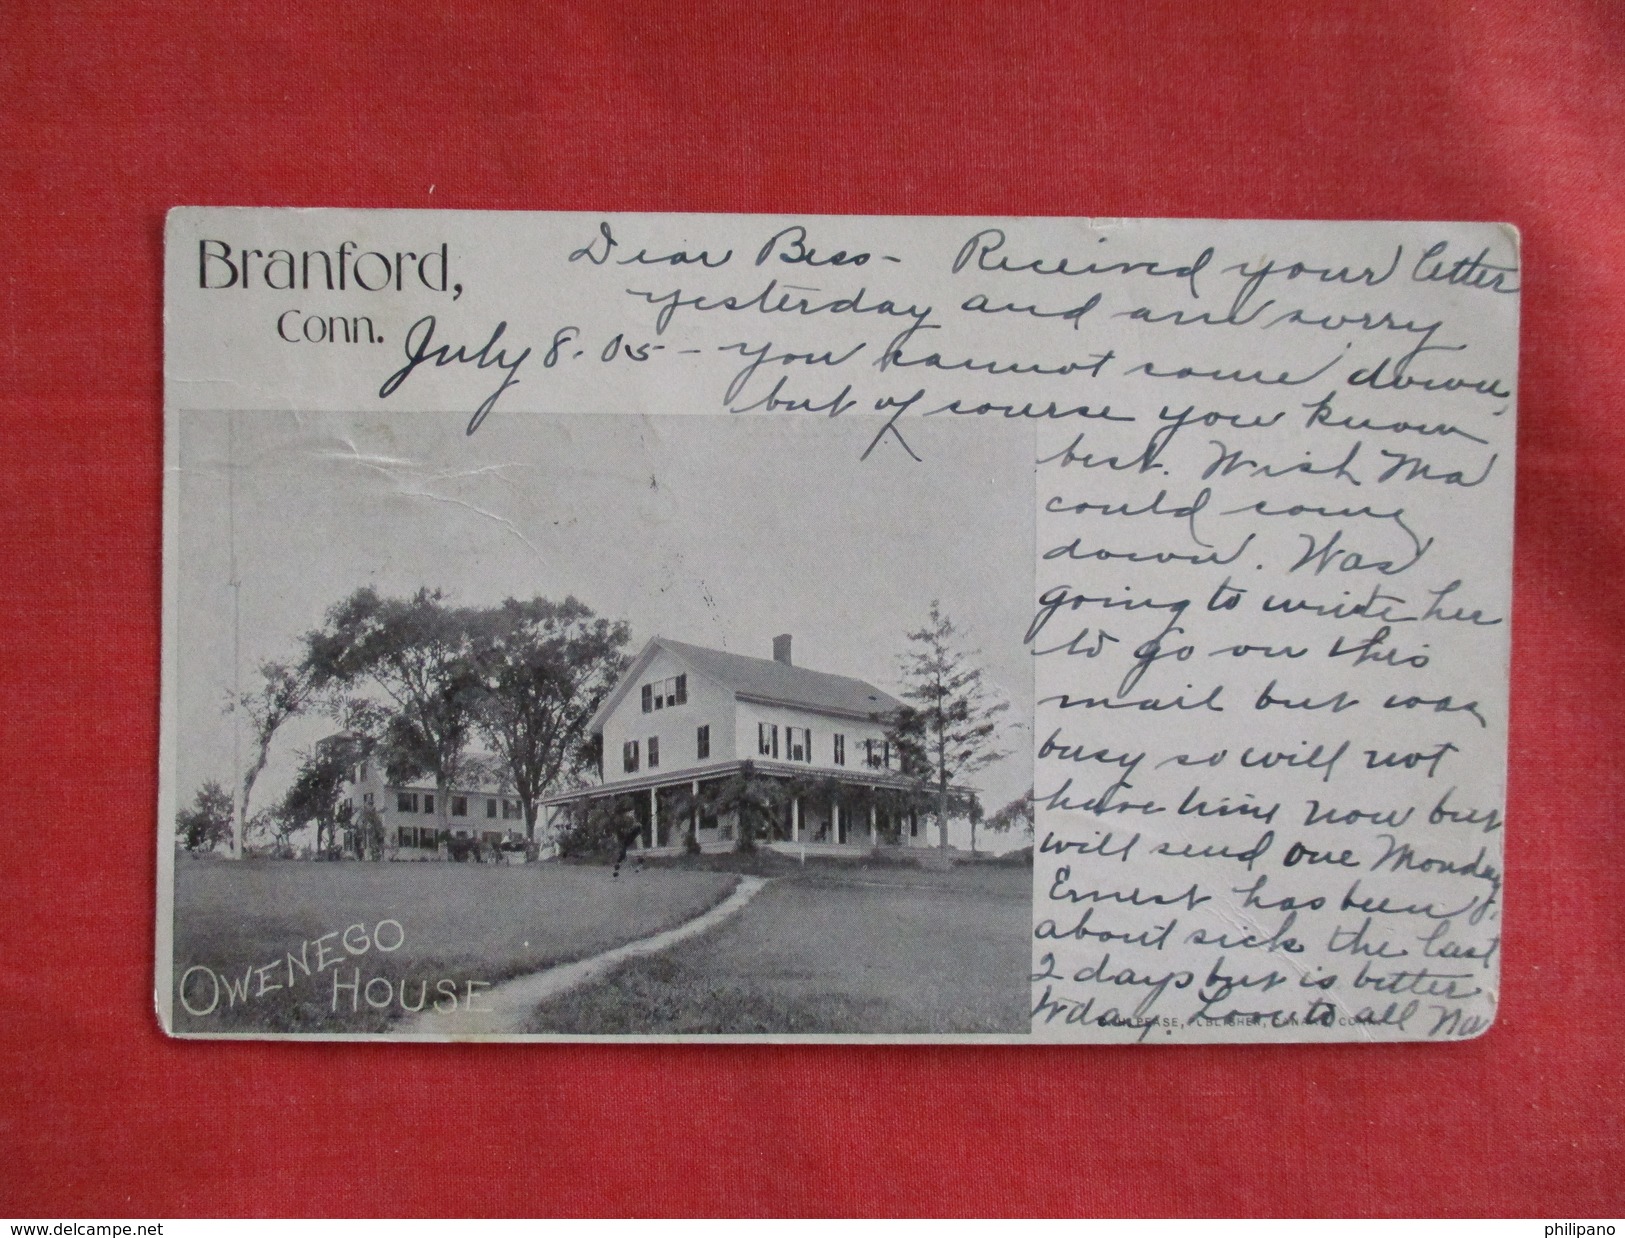 Branford,
Conn.
Dear Bess - Received your letter
yesterday and am sorry
July 8. 05 - you cannot come down,
but of course you know
best. Wish Ma
could come
down. Was
going to write her
to go on this
mail but was
busy so will not
have time now but
will send one Monday
Ernest has been
about sick the last
2 days but is better
today. Love to all
OWENEGO
HOUSE
PEASE, PUBLISHER, CANAAN CONN.
www.delcampe.net
philipano